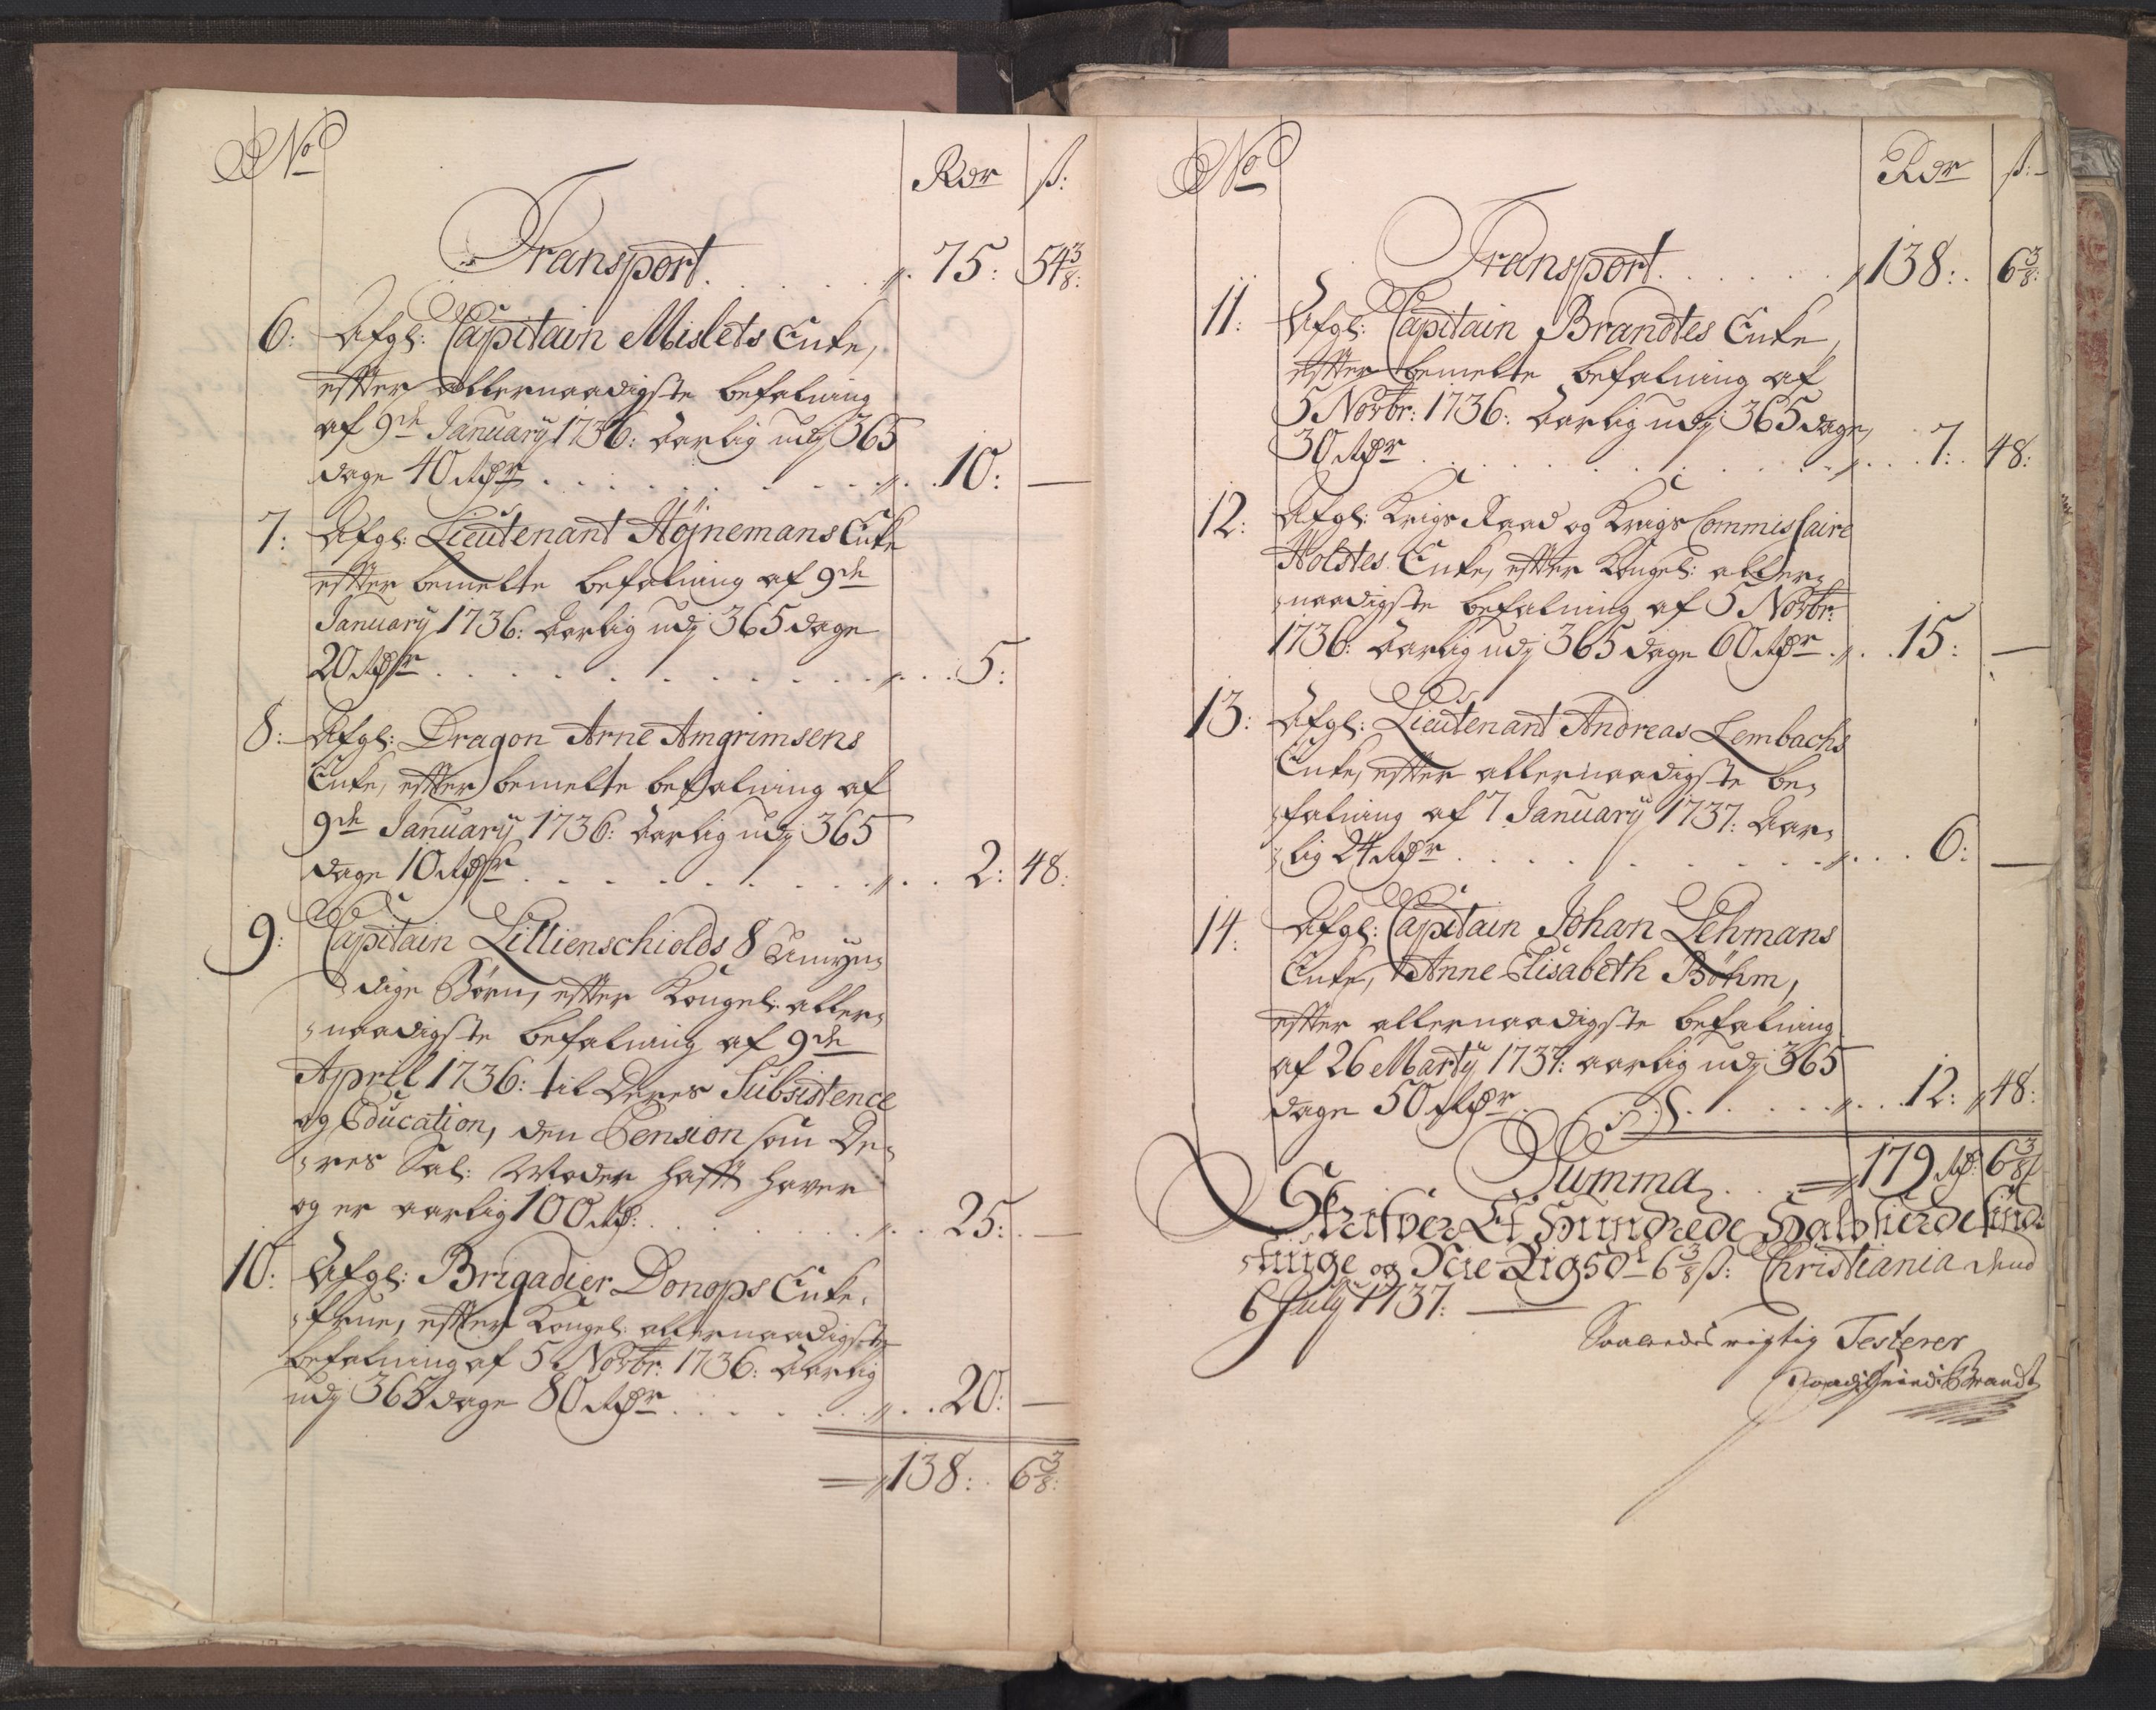 No
Rdr ß:
Transport. 75: 54 3/8:
6: Afgl: Capitain Mislets Encke,
efter allernaadigste befalning
af 9de January 1736: Aarlig udj 365
dage 40 Rdr 10: —
7: Afgl: Lieutenant Höjnemans Encke
efter bemelte befalning af 9de
January 1736: Aarlig udj 365 dage
20 Rdr 5:
8: Afgl: Dragon Arne Amgrimsens
Encke, efter bemelte befalning af
9de January 1736: Aarlig udj 365
dage 10 Rdr 2: 48:
9: Capitain Lillienschiolds 8 Umyn-
dige Børn, efter Kongel: aller-
naadigste befalning af 9de
April 1736: til Deres Subsistence
og Education, den Pension som De-
res Sal: Moder hafft haver
og er aarlig 100 Rd: 25: —
10: Afgl: Brigadier Donops Encke-
frue, efter Kongel: allernaadigste
befalning af 5 Novbr: 1736: Aarlig
udj 365 dage 80 Rdr 20: —
138: 6 3/8:
No
Rdr ß:
Transport. 138: 6 3/8:
11: Afgl: Capitain Brandtes Encke,
efter bemelte befalning af
5 Novbr: 1736: Aarlig udj 365 dage,
30 Rdr 7: 48:
12: Afgl: Krigs Raad og Krigs Commissaire
Holstes Encke, efter Kongel: aller-
naadigste befalning af 5 Novbr:
1736: Aarlig udj 365 dage 60 Rdr 15: —
13: Afgl: Lieutenant Andreas Lembachs
Encke, efter allernaadigste be-
falning af 7 January 1737: Aar-
lig 24 Rdr 6: —
14: Afgl: Capitain Johan Lehmans
Encke, Anne Elisabeth Böhm,
efter allernaadigste befalning
af 26 Martij 1737: aarlig udj 365
dage 50 Rdr 12: 48:
Summa 179 Rd: 6 3/8 ß
Skrifver Et Hundrede Halvfierdesinds
tiuge og Nie Rigsdl 6 3/8 ß: Christiania dend
6 July 1737:
Saaledes rigtig Testerer
Brandt